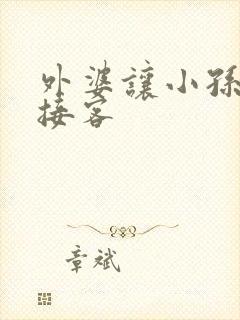 外婆讓小孫
接客
章斌